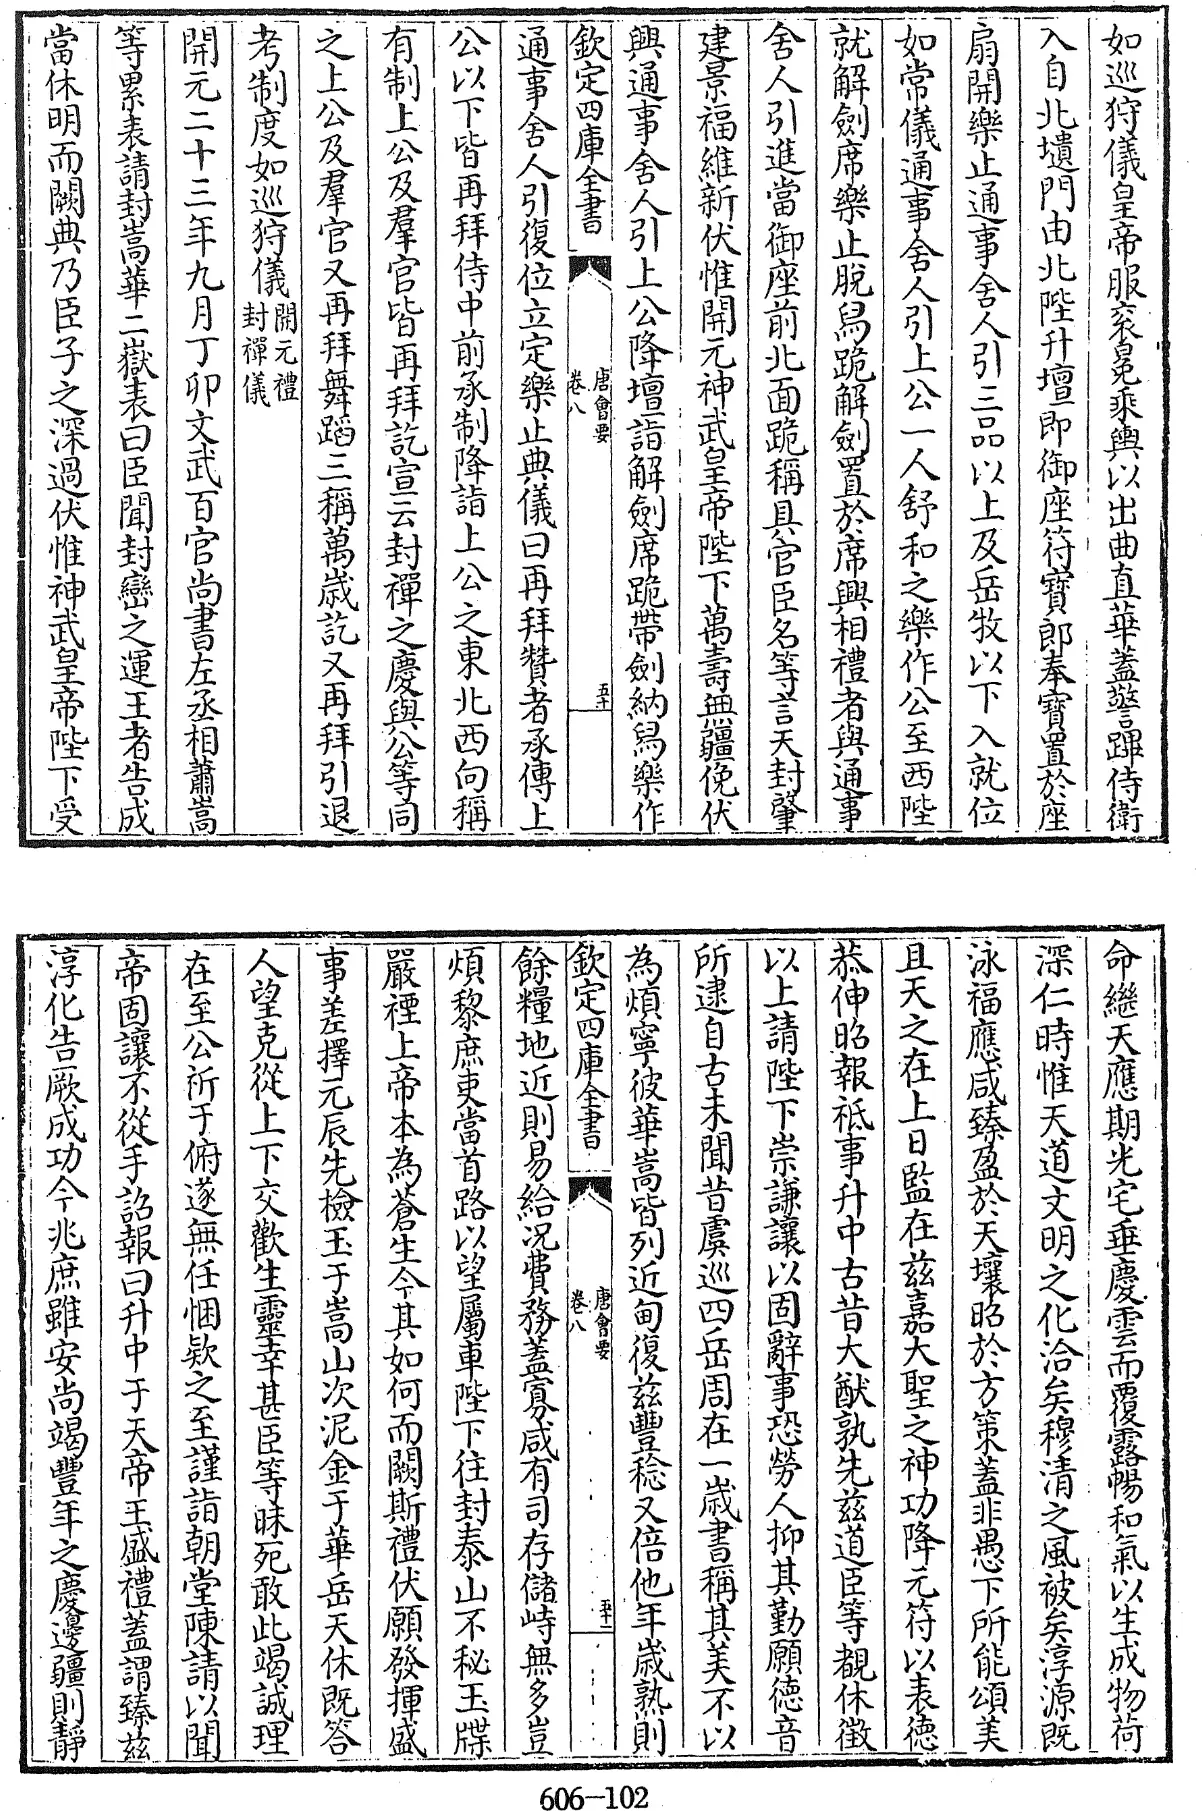 如巡狩儀皇帝服衮冕乘輿以出曲直華蓋警蹕侍衛
入自北壝門由北陛升壇即御座符寶郎奉寶置於座
扇開樂止通事舍人引三品以上及岳牧以下入就位
如常儀通事舍人引上公一人舒和之樂作公至西陛
就解劍席樂止脫舄跪解劍置於席興相禮者與通事
舍人引進當御座前北面跪稱具官臣名等言天封肇
建景福維新伏惟開元神武皇帝陛下萬壽無疆俛伏
興通事舍人引上公降壇詣解劍席跪帶劍納舄樂作
欽定四庫全書
唐會要
卷八
五十
通事舍人引復位立定樂止典儀曰再拜贊者承傳上
公以下皆再拜侍中前承制降詣上公之東北西向稱
有制上公及羣官皆再拜訖宣云封禪之慶與公等同
之上公及羣官又再拜舞蹈三稱萬歲訖又再拜引退
考制度如巡狩儀開元禮
封禪儀
開元二十三年九月丁卯文武百官尚書左丞相蕭嵩
等累表請封嵩華二嶽表曰臣聞封巒之運王者告成
當休明而闕典乃臣子之深過伏惟神武皇帝陛下受
命繼天應期光宅垂慶雲而覆露暢和氣以生成物荷
深仁時惟天道文明之化洽矣穆清之風被矣淳源既
泳福應咸臻盈於天壤昭於方策蓋非愚下所能頌美
且天之在上日監在兹嘉大聖之神功降元符以表德
恭伸昭報祗事升中古昔大猷孰先兹道臣等覩休徵
以上請陛下崇謙讓以固辭事恐勞人抑其勤願德音
所逮自古未聞昔虞巡四岳周在一歲書稱其美不以
為煩寧彼華嵩皆列近甸復兹豐稔又倍他年歲熟則
欽定四庫全書
唐會要
卷八
五十一
餘糧地近則易給况費務蓋寡咸有司存儲峙無多豈
煩黎庶吏當首路以望屬車陛下往封泰山不秘玉牒
嚴禋上帝本為蒼生今其如何而闕斯禮伏願發揮盛
事差擇元辰先檢玉于嵩山次泥金于華岳天休既答
人望克從上下交歡生靈幸甚臣等昧死敢此竭誠理
在至公祈于俯遂無任悃款之至謹詣朝堂陳請以聞
帝固讓不從手詔報曰升中于天帝王盛禮蓋謂臻兹
淳化告厥成功今兆庶雖安尚竭豐年之慶邊疆則靜
606—102